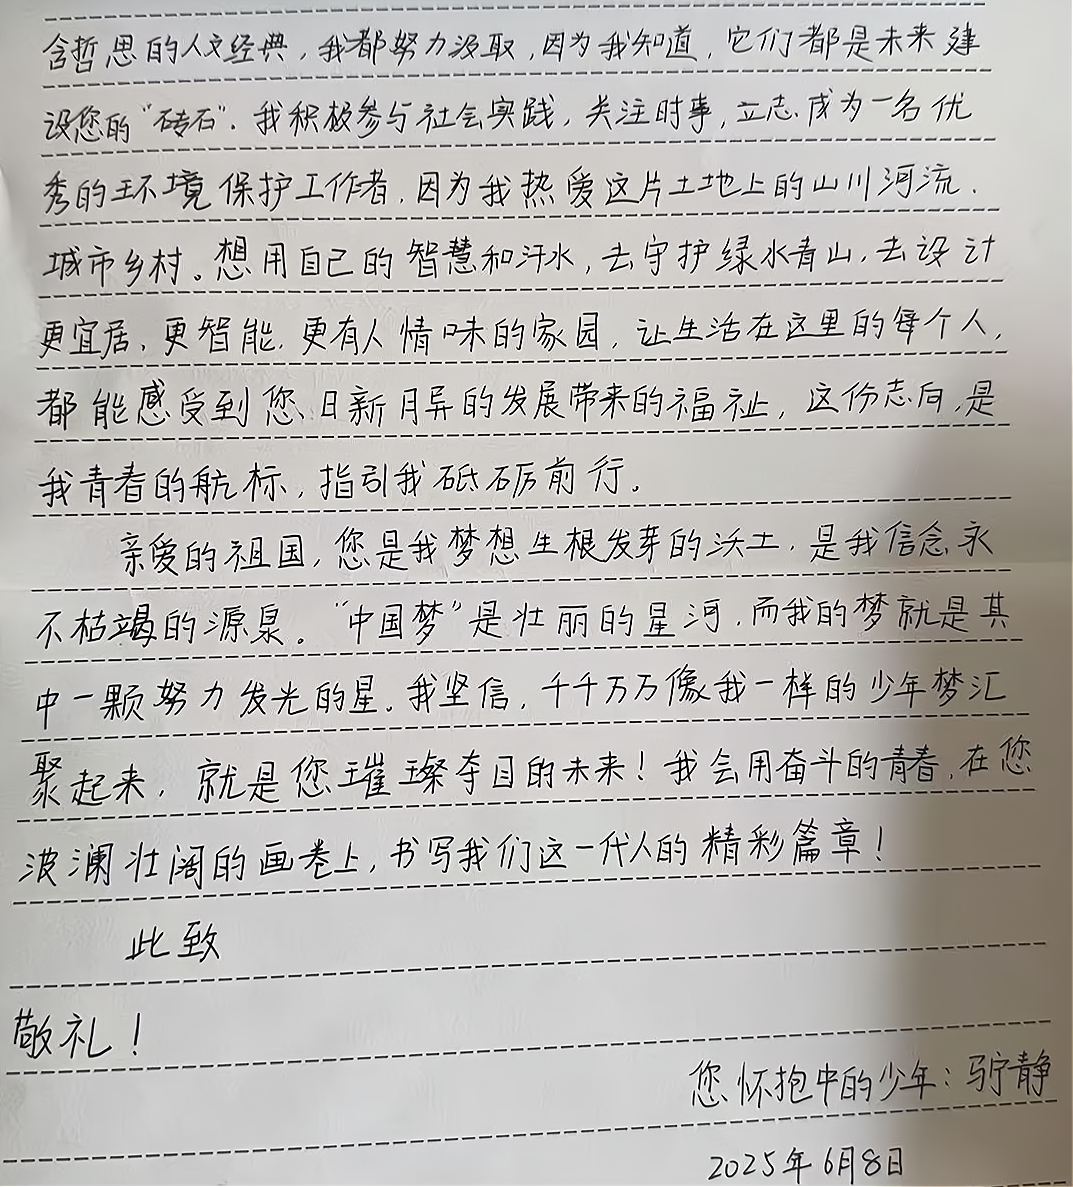 含哲思的人文经典，我都努力汲取，因为我知道，它们都是未来建
设您的“砖石”。我积极参与社会实践，关注时事，立志成为一名优
秀的环境保护工作者，因为我热爱这片土地上的山川河流、
城市乡村。想用自己的智慧和汗水，去守护绿水青山，去设计
更宜居、更智能、更有人情味的家园，让生活在这里的每个人，
都能感受到您、日新月异的发展带来的福祉，这份志向，是
我青春的航标，指引我砥砺前行。
亲爱的祖国，您是我梦想生根发芽的沃土，是我信念永
不枯竭的源泉。“中国梦”是壮丽的星河，而我的梦就是其
中一颗努力发光的星。我坚信，千千万万像我一样的少年梦汇
聚起来，就是您璀璨夺目的未来！我会用奋斗的青春，在您
波澜壮阔的画卷上，书写我们这一代人的精彩篇章！
此致
敬礼！
您怀抱中的少年：宁静
2025年6月8日